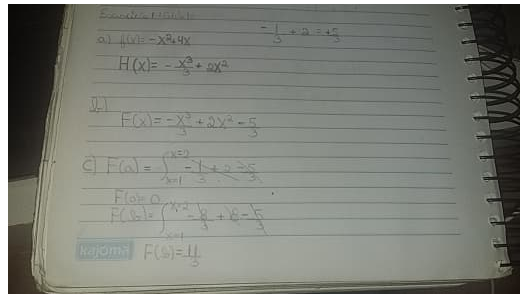 a) f(x) = -x²+4x
-1/3 + 2 = +5/3
H(x) = - x³/3 + 2x²
b)
F(x) = -x³/3 + 2x² - 5/3
c) F(a) = ∫ x=2 x=1 -1/3 + 2 - 5/3
F(a) = 0
F(b) = ∫ x=2 x=1 -8/3 + 8 - 5/3
kajoma
F(b) = 11/3